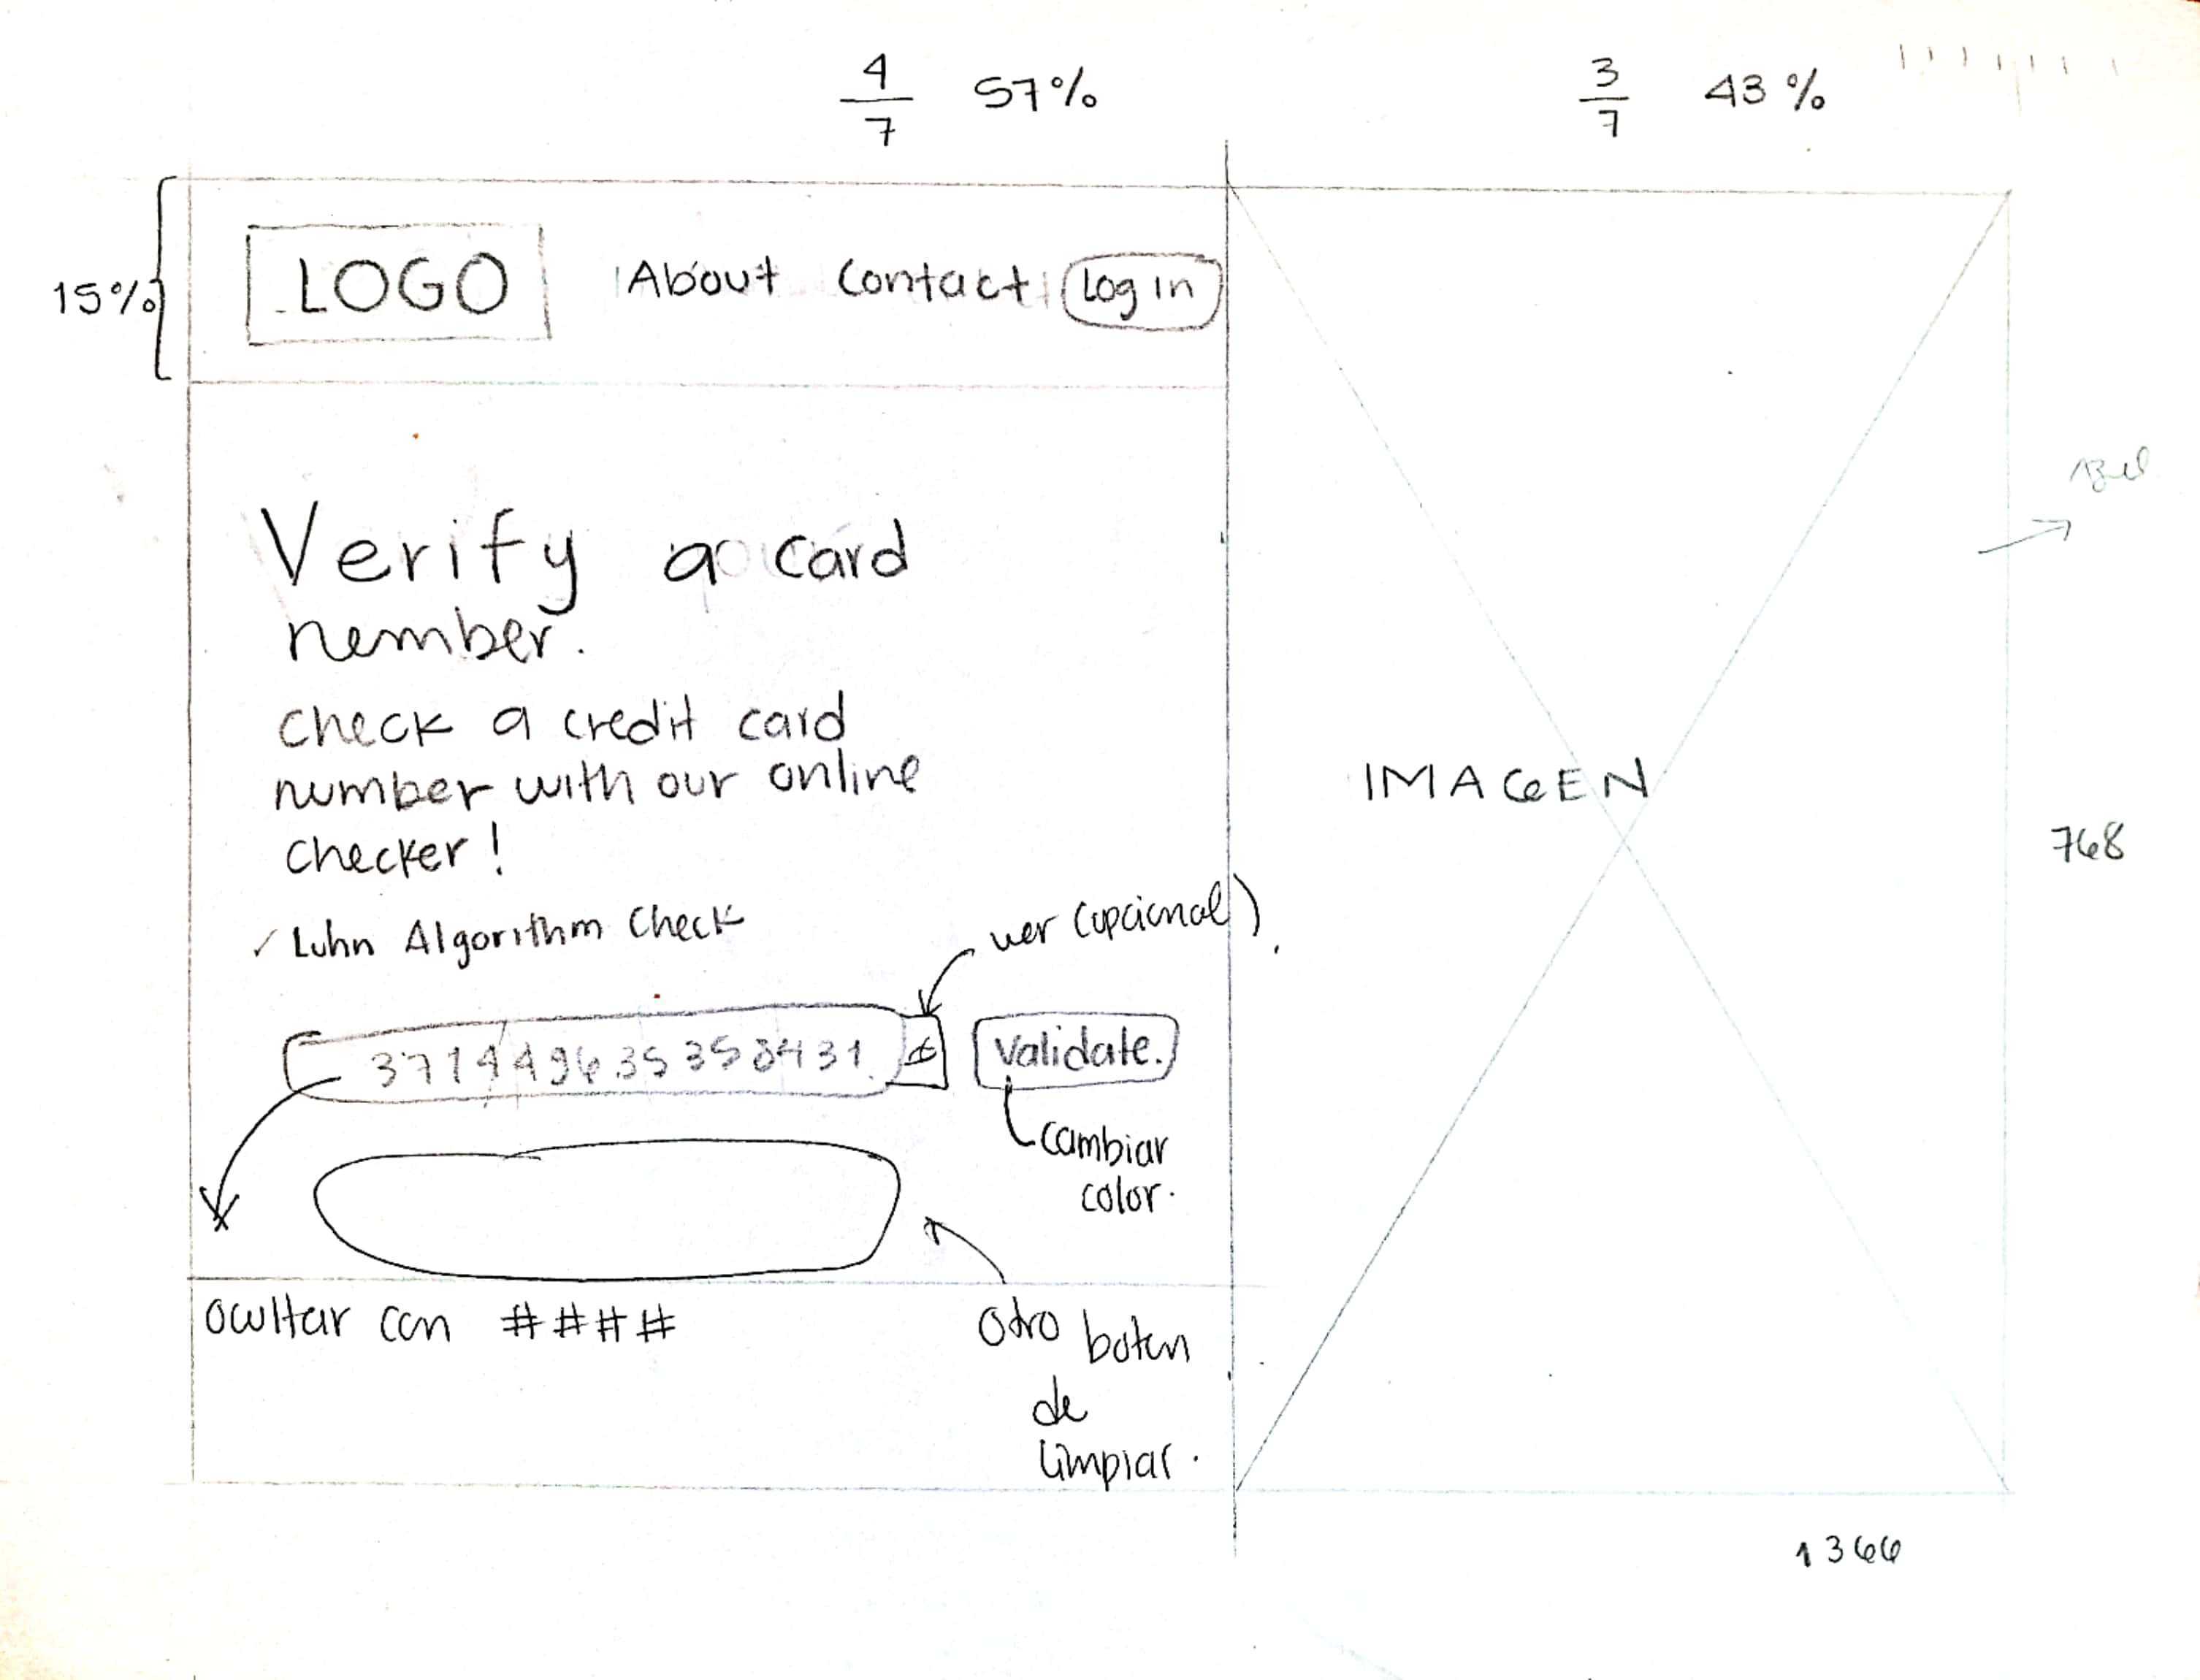 4/7 57%
3/7 43%
15%
LOGO About Contact Log in
Verify a card
nember.
check a credit card
number with our online
checker!
✓ Luhn Algorithm Check
ver (opcional).
371449635358431
Validate.
Cambiar
color.
ocultar con ####
Otro boton
de
limpiar.
IMAGEN
768
1366